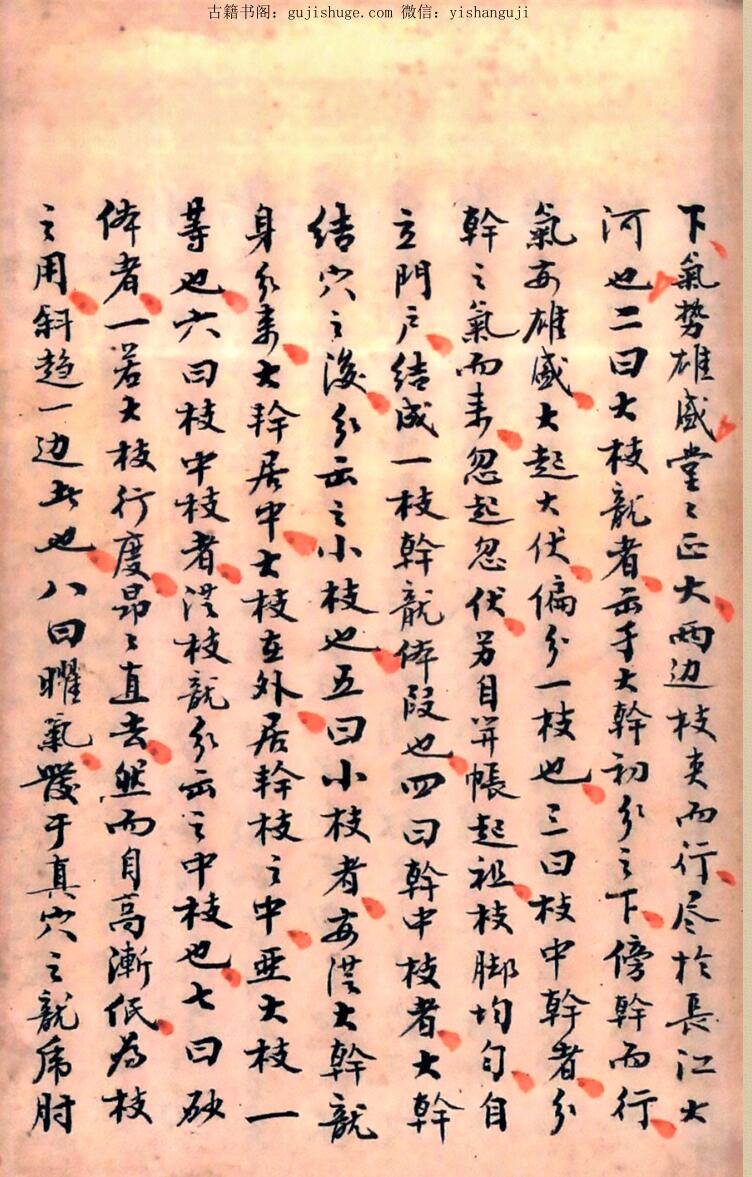 古籍书阁：gujishuge.com 微信：yishanguji
下氣势雄盛堂〻正大两边枝夹而行尽於長江大
河也二曰大枝龍者云乎大幹初分之下傍幹而行
氣亦雄盛大起大伏偏分一枝也三曰枝中幹者分
幹之氣而来忽起忽伏另自开帳起祖枝脚均匀自
立門户结成一枝幹龍体段也四曰幹中枝者大幹
结穴之後分出之小枝也五曰小枝者亦從大幹龍
身分来大幹居中大枝在外居幹枝之中亜大枝一
等也六曰枝中枝者從枝龍分出之中枝也七曰砂
体者一若大枝行度昂〻直去然而自高漸低为枝
之用斜趋一边者也八曰曜氣發于真穴之龍虎肘